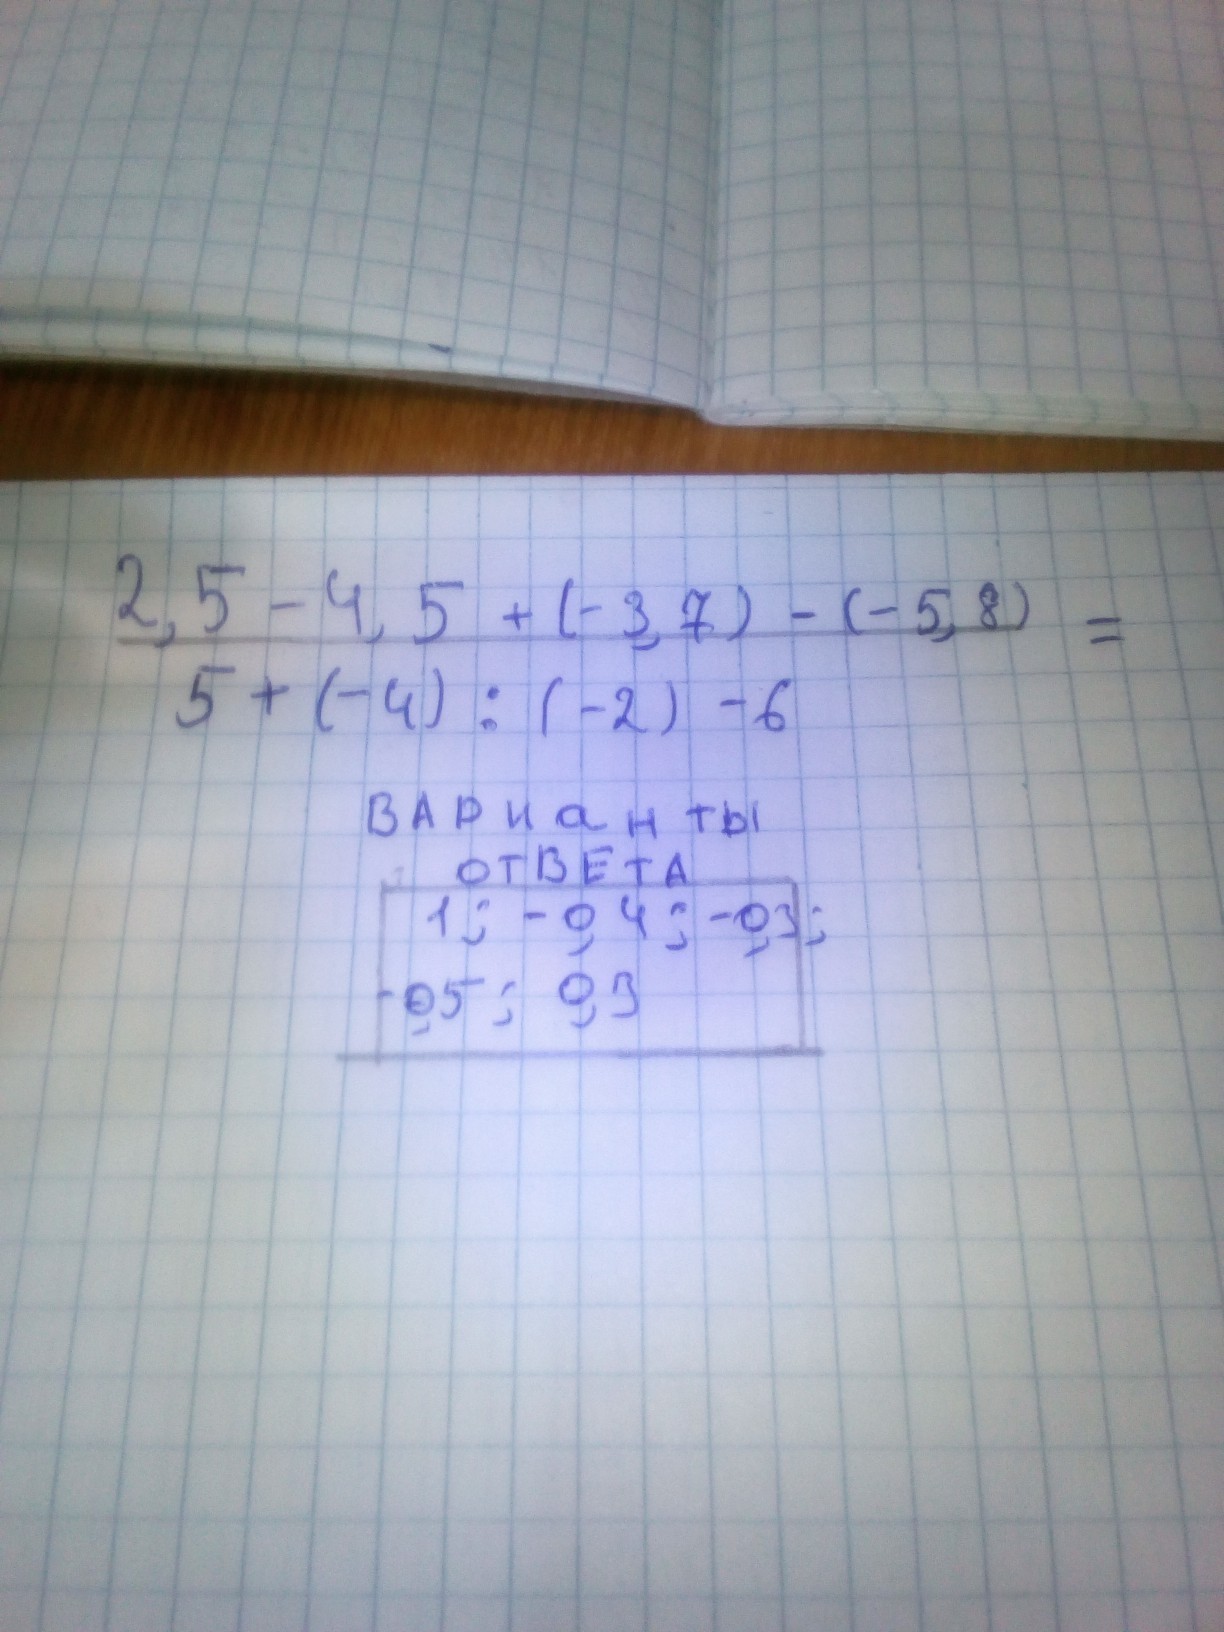 2,5 - 4,5 + (-3,7) - (-5,8) =
5 + (-4) : (-2) - 6
ВАРИаНТЫ
ОТВЕТА
1; -0,4; -0,3;
-0,5; 0,3